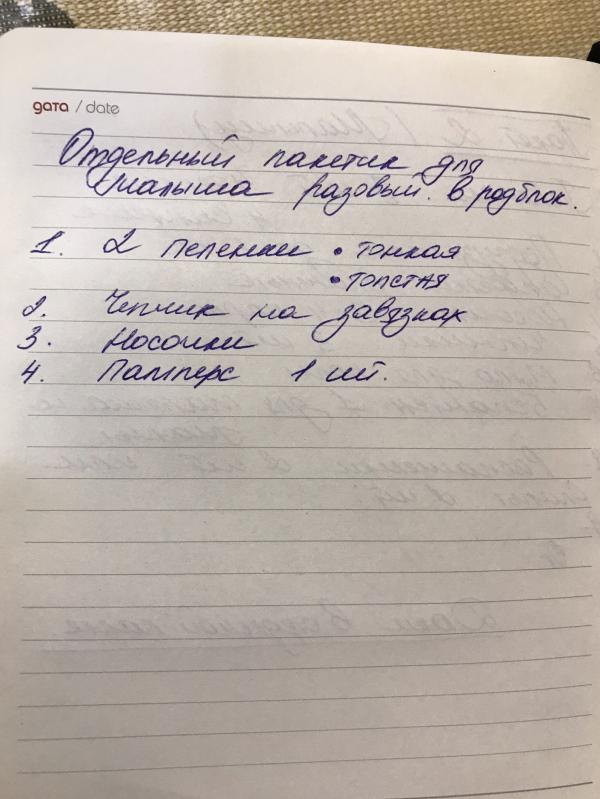 дата / date
Отдельный пакетик для
малыша разовый. в родблок.
1. 2 пеленки • тонкая
• толстая
2. Чепчик на завязках
3. Носочки
4. Памперс 1 шт.